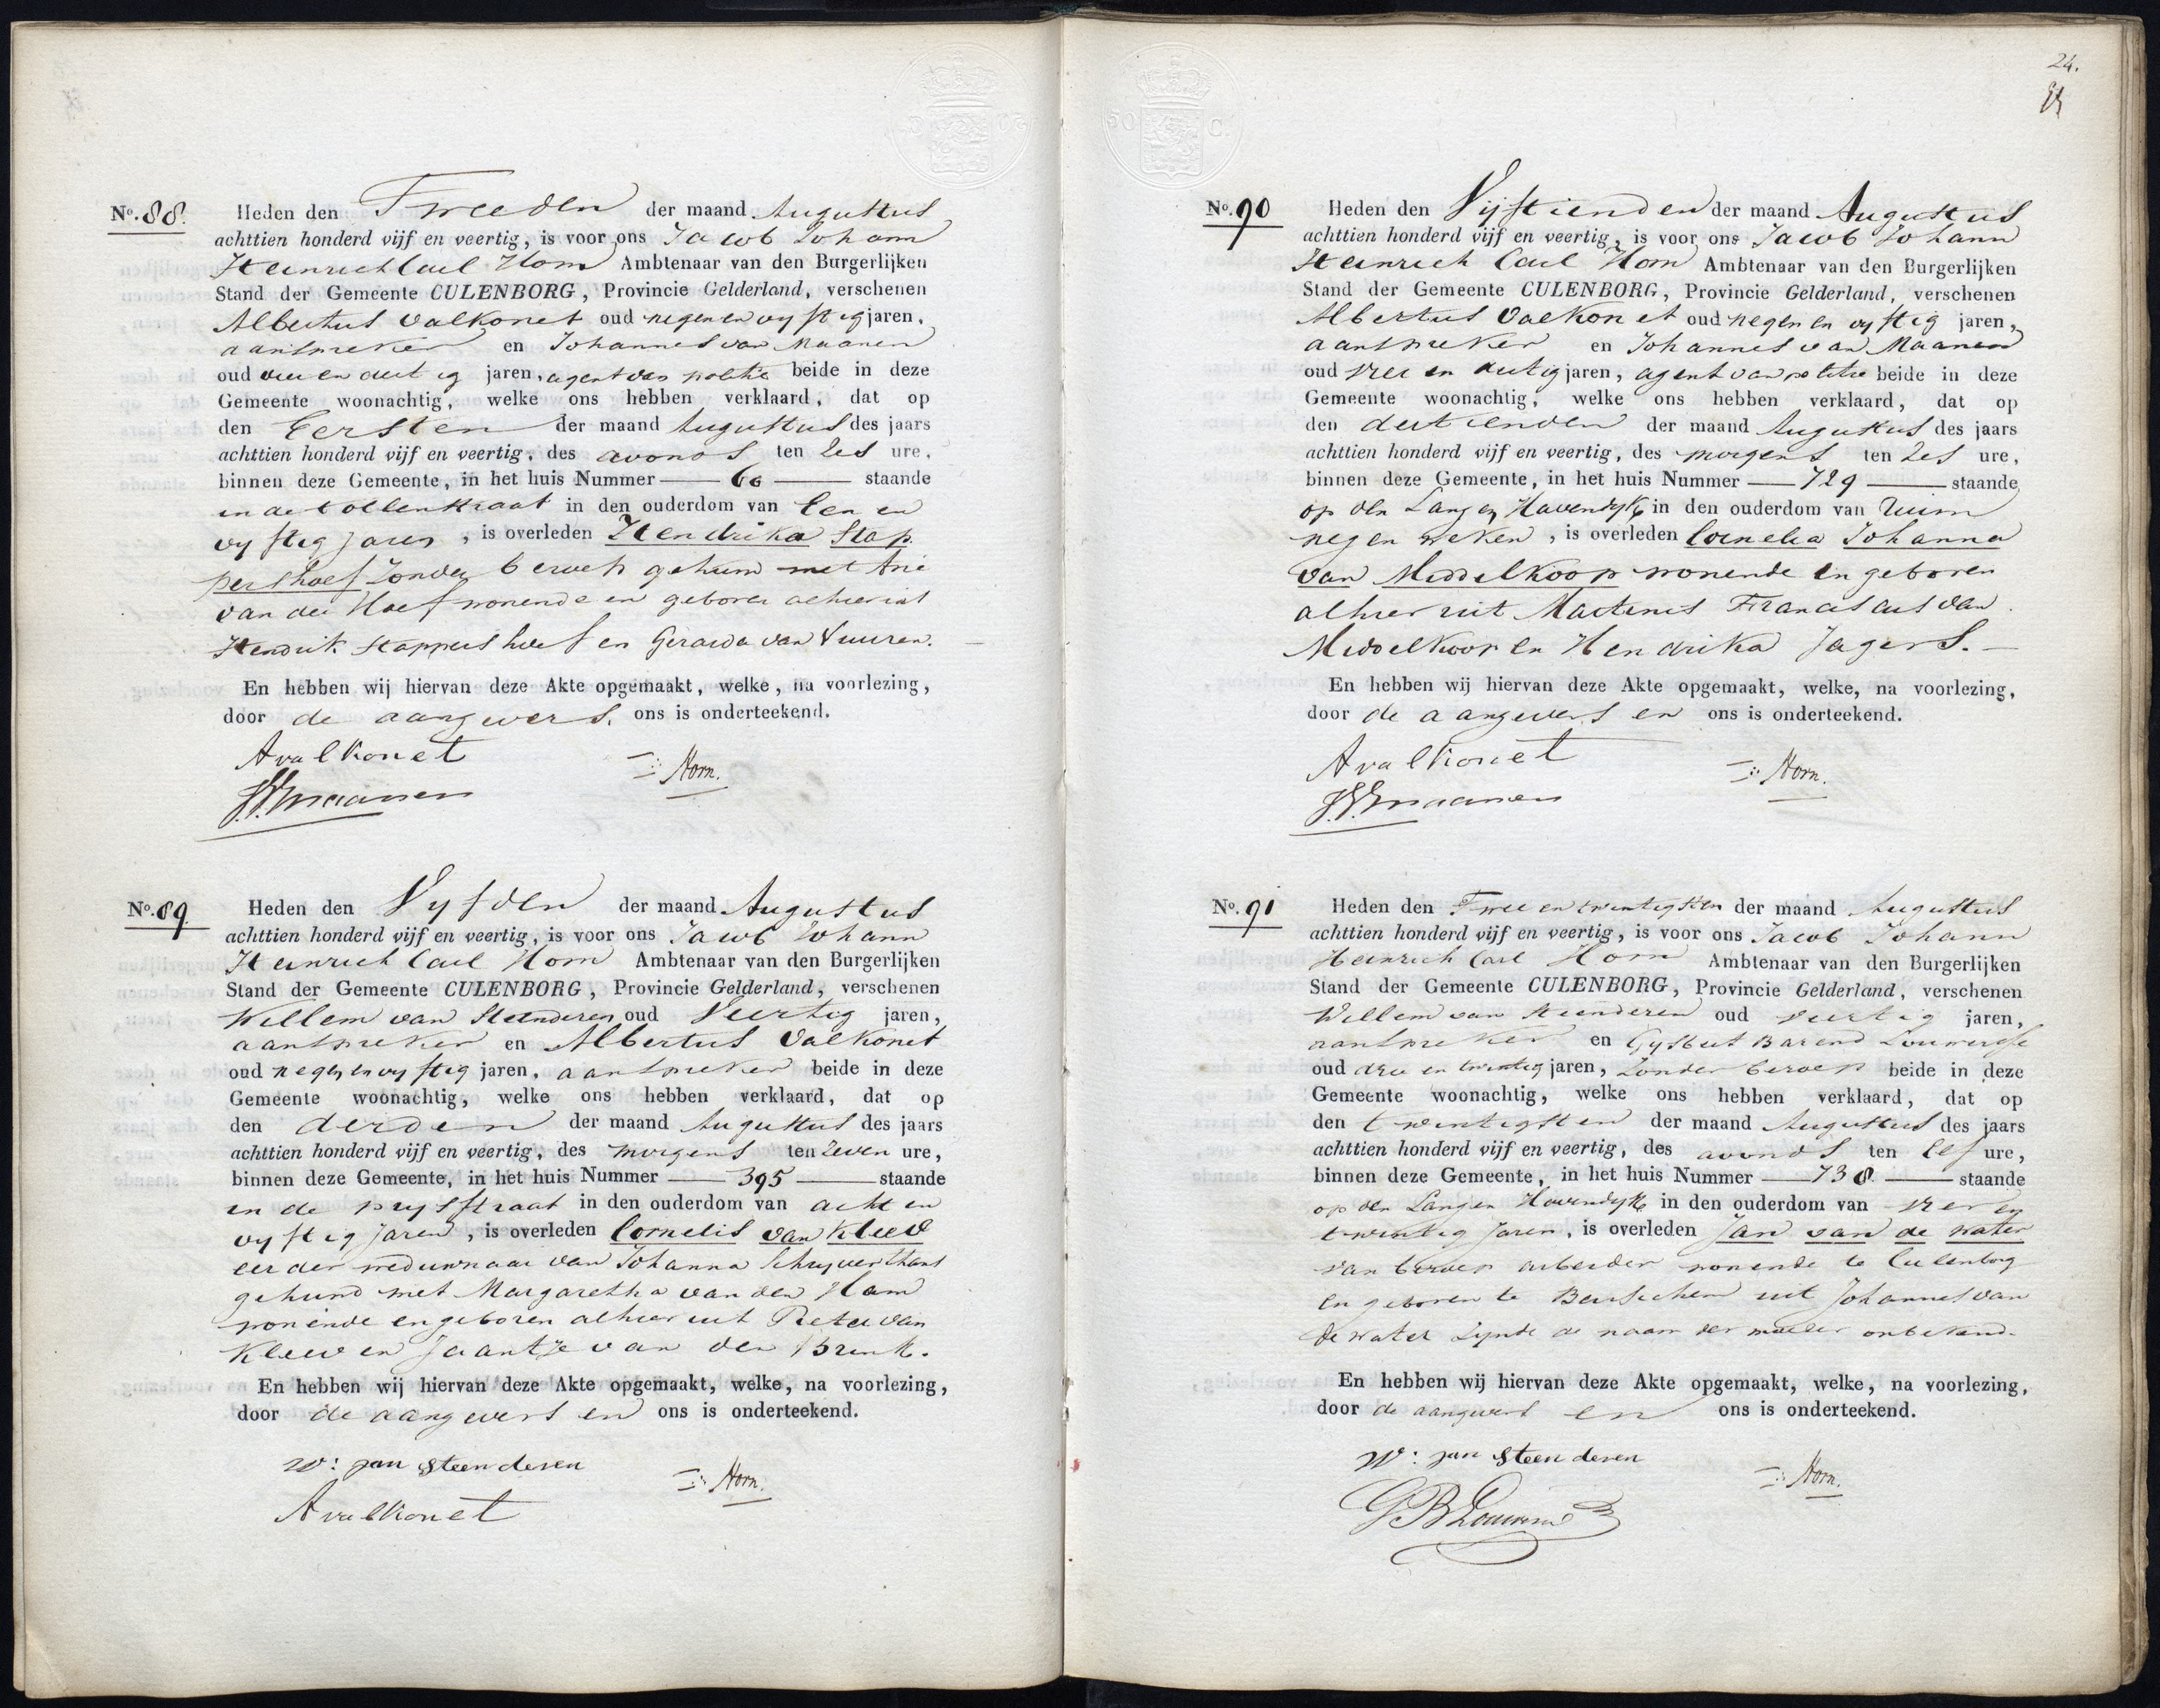 No. 88.
Heden den Tweeden der maand Augustus
achttien honderd vijf en veertig, is voor ons Jacob Johann
Heinrich Carl Horn Ambtenaar van den Burgerlijken
Stand der Gemeente CULENBORG, Provincie Gelderland, verschenen
Albertus Valkonet oud negen en vyftig jaren,
aanspreker en Johannes van Maanen
oud vier en dertig jaren, agent van politie beide in deze
Gemeente woonachtig, welke ons hebben verklaard, dat op
den Eersten der maand Augustus des jaars
achttien honderd vijf en veertig, des avonds ten zes ure,
binnen deze Gemeente, in het huis Nummer 60 staande
in de Tollenstraat in den ouderdom van Een en
vyftig jaren, is overleden Hendrika Stap
pershoef zonder beroep gehuwd met Arie
van der Hoef wonende en geboren alhier uit
Hendrik Stappershoef en Gerarda van Vuuren.
En hebben wij hiervan deze Akte opgemaakt, welke, na voorlezing,
door de aangevers, ons is onderteekend.
A valkonet
Horn.
J.V. maanen
No. 89
Heden den Vyfden der maand Augustus
achttien honderd vijf en veertig, is voor ons Jacob Johann
Heinrich Carl Horn Ambtenaar van den Burgerlijken
Stand der Gemeente CULENBORG, Provincie Gelderland, verschenen
Willem van Steenderen oud Veertig jaren,
aanspreker en Albertus Valkonet
oud negen en vyftig jaren, aanspreker beide in deze
Gemeente woonachtig, welke ons hebben verklaard, dat op
den derden der maand Augustus des jaars
achttien honderd vijf en veertig, des morgens ten zeven ure,
binnen deze Gemeente, in het huis Nummer 395 staande
in de prysstraat in den ouderdom van acht en
vyftig jaren, is overleden Cornelis van Kleef
eerder weduwnaar van Johanna Schryver thans
gehuwd met Margaretha van den Ham
wonende en geboren alhier uit Pieter van
Kleev en Jaantje van den Brink.
En hebben wij hiervan deze Akte opgemaakt, welke, na voorlezing,
door de aangevers en ons is onderteekend.
W: van Steenderen
Horn.
A valkonet
24.
No. 90
Heden den Vijftienden der maand Augustus
achttien honderd vijf en veertig, is voor ons Jacob Johann
Heinrich Carl Horn Ambtenaar van den Burgerlijken
Stand der Gemeente CULENBORG, Provincie Gelderland, verschenen
Albertus Valkonet oud negen en vyftig jaren,
aanspreker en Johannes van Maanen
oud vier en dertig jaren, agent van politie beide in deze
Gemeente woonachtig, welke ons hebben verklaard, dat op
den dertienden der maand Augustus des jaars
achttien honderd vijf en veertig, des morgens ten zes ure,
binnen deze Gemeente, in het huis Nummer 729 staande
op den Langen Havendyk in den ouderdom van Ruim
negen weken, is overleden Cornelia Johanna
van Middelkoop wonende en geboren
alhier uit Martinus Franciscus van
Middelkoop en Hendrika Jagers.
En hebben wij hiervan deze Akte opgemaakt, welke, na voorlezing,
door de aangevers en ons is onderteekend.
A valkonet
Horn.
J.V. maanen
No. 91
Heden den Twee en twintigsten der maand Augustus
achttien honderd vijf en veertig, is voor ons Jacob Johann
Heinrich Carl Horn Ambtenaar van den Burgerlijken
Stand der Gemeente CULENBORG, Provincie Gelderland, verschenen
Willem van Steenderen oud veertig jaren,
aanspreker en Gysbert Barend Louwerse
oud drie en twintig jaren, zonder beroep beide in deze
Gemeente woonachtig, welke ons hebben verklaard, dat op
den twintigsten der maand Augustus des jaars
achttien honderd vijf en veertig, des avonds ten elf ure,
binnen deze Gemeente, in het huis Nummer 738 staande
op den Langen Havendyk in den ouderdom van vier en
twintig jaren, is overleden Jan van de Water
van beroep arbeider wonende te Culenborg
en geboren te Beusichem uit Johannes van
de Water zynde de naam der moeder onbekend.
En hebben wij hiervan deze Akte opgemaakt, welke, na voorlezing,
door de aangevers en ons is onderteekend.
W: van Steenderen
Horn.
G B Louwerse